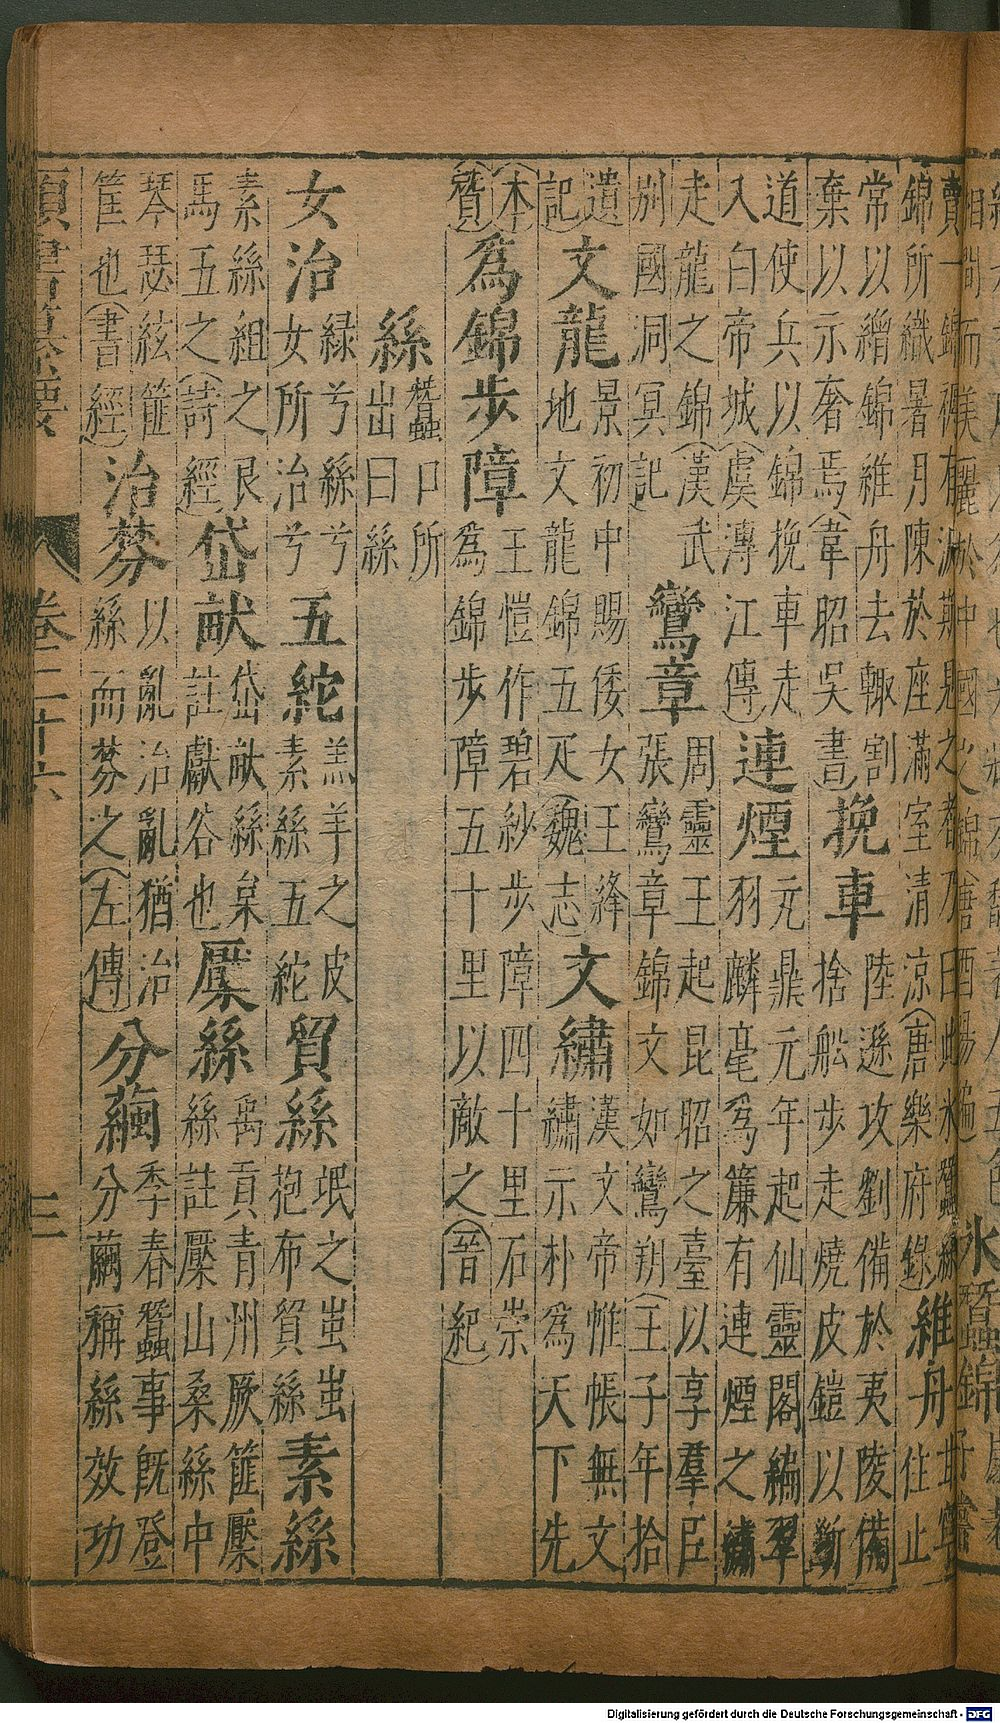 相間而美麗於中國之錦(唐酉陽
氷蠶錦
賣一錦褥有波斯見之者乃曰此氷蠶絲
錦所織暑月陳於座滿室清涼(唐樂府錄)
維舟
甘寧
住止
常以繒錦維舟去輙割
棄以示奢焉(韋昭吳書)
挽車
陸遜攻劉備於夷陵備
捨舩步走燒皮鎧以斷
道使兵以錦挽車走
入白帝城(虞溥江傳)
連煙
元鼎元年起仙靈閣編翠
羽麟毫爲簾有連煙之繡
走龍之錦(漢武
別國洞冥記
鸞章
周靈王起昆昭之臺以享羣臣
張鸞章錦文如鸞翔(王子年拾
遺
記)
文龍
景初中賜倭女王絳
地文龍錦五疋(魏志)
文繡
漢文帝帷帳無文
繡示朴爲天下先
(本
賛)
爲錦步障
王愷作碧紗步障四十里石崇
爲錦步障五十里以敵之(晉紀)
絲
蠶口所
出曰絲
女治
緑兮絲兮
女所治兮
五紽
羔羊之皮
素絲五紽
貿絲
氓之蚩蚩
抱布貿絲
素絲
素絲組之良
馬五之(詩經)
岱畎
岱畎絲枲
註獻谷也
檿絲
禹貢青州厥篚檿
絲註檿山桑絲中
琴瑟絃篚
筐也(書經)
治棼
以亂治亂猶治
絲而棼之(左傳)
分繭
季春蠶事既登
分繭稱絲效功
類書纂要 卷二十六 三
Digitalisierung gefördert durch die Deutsche Forschungsgemeinschaft - DFG